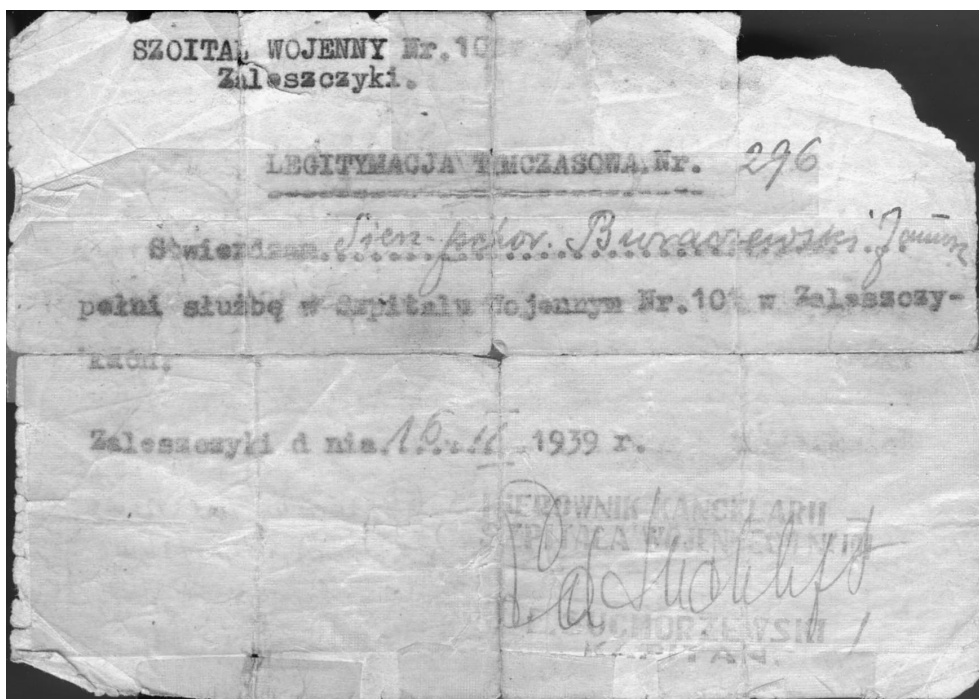 SZOITAL WOJENNY Nr.10
Zaleszczyki.
LEGITYMACJA TYMCZASOWA Nr. 296
Stwierdzam Sierż. pchor. Buraczewski Janusz
pełni służbę w Szpitalu Wojennym Nr.101 w Zaleszczy-
kach.
Zaleszczyki d nia 16. 1939 r.
KIEROWNIK KANCELARII
SZPITALA WOJENNEGO Nr 101
KAPITAN.